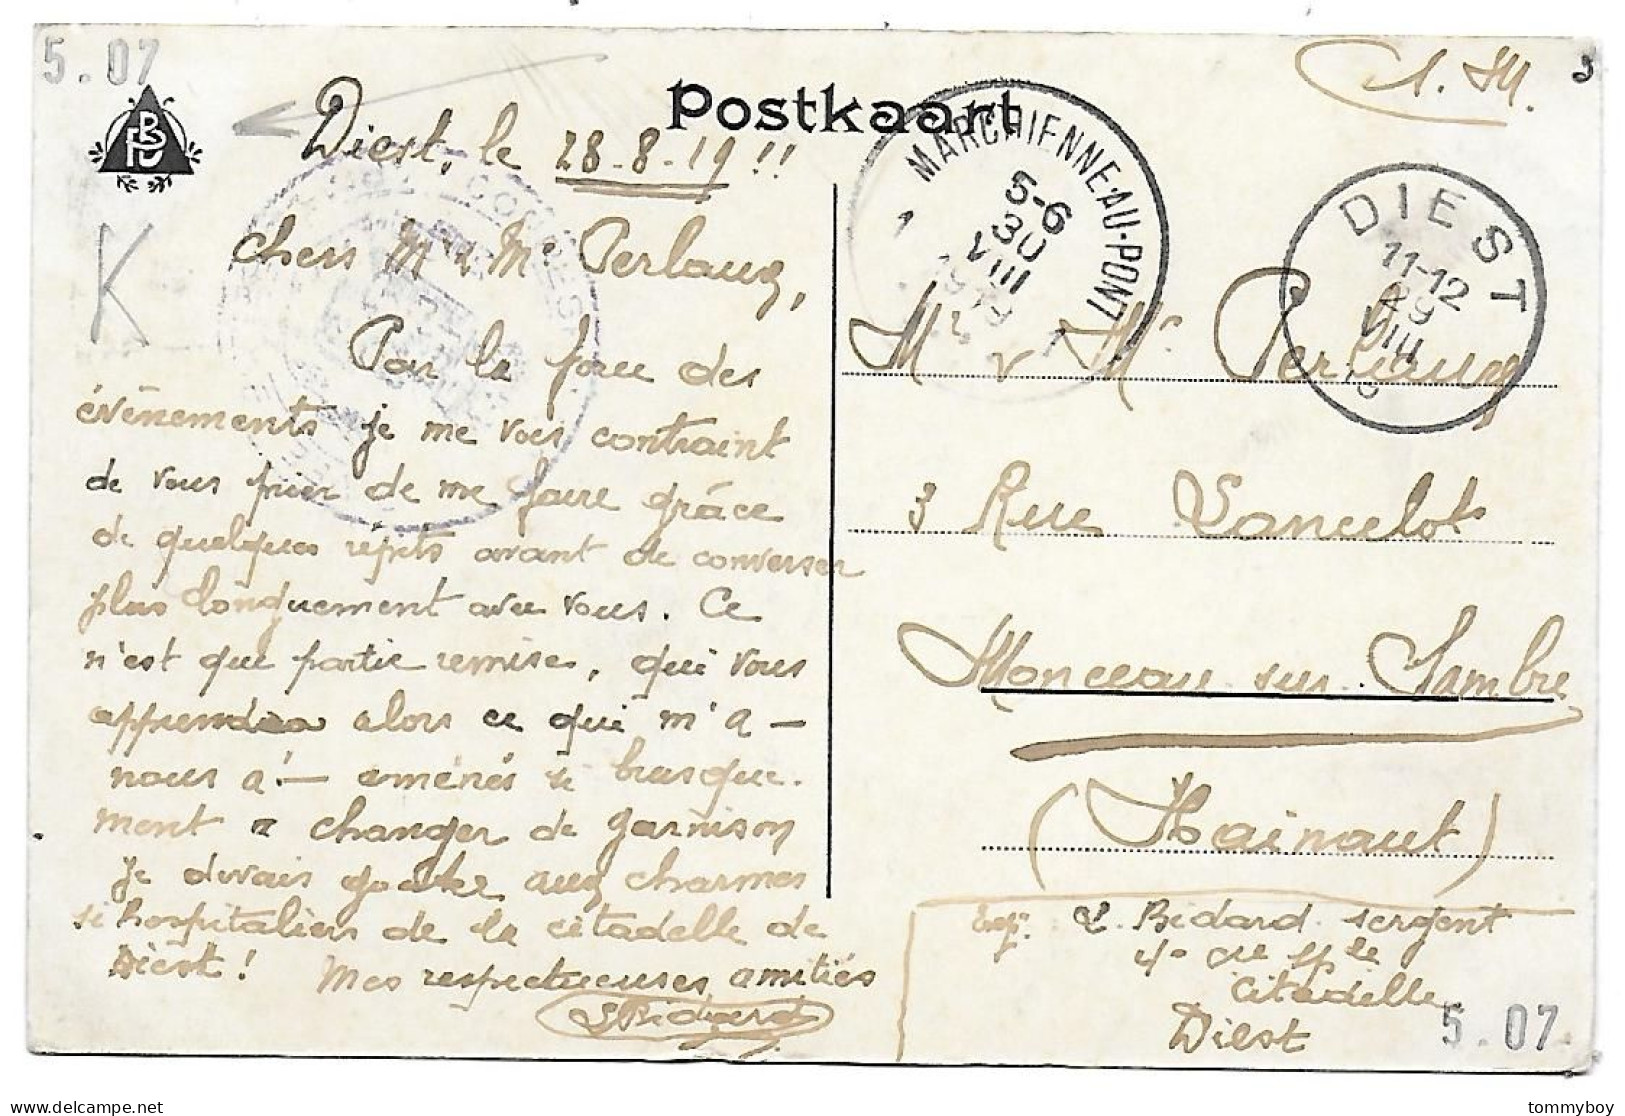 5.07
Postkaart
S.M.
Diest, le 28-8-19!!
Chers Mr & Me Perlaux,
Par la force des
évênements je me vois contraint
de vous prier de me faire grâce
de quelques répits avant de converser
plus longuement avec vous. Ce
n'est que partie remise, qui vous
apprendra alors ce qui m'a —
nous a! — amenés si brusque-
ment à changer de garnison
Je devais goûter aux charmes
si hospitaliers de la citadelle de
Diest! Mes respectueuses amitiés
LBedard
K
MARCHIENNE-AU-PONT
5-6
30
VIII
1919
DIEST
11-12
29
VIII
Mr & Me Perlaux
3 Rue Lancelot
Monceau sur Sambre
(Hainaut)
Exp: L. Bedard sergent
4e cie
Citadelle
Diest
5.07
delcampe.net
tommyboy